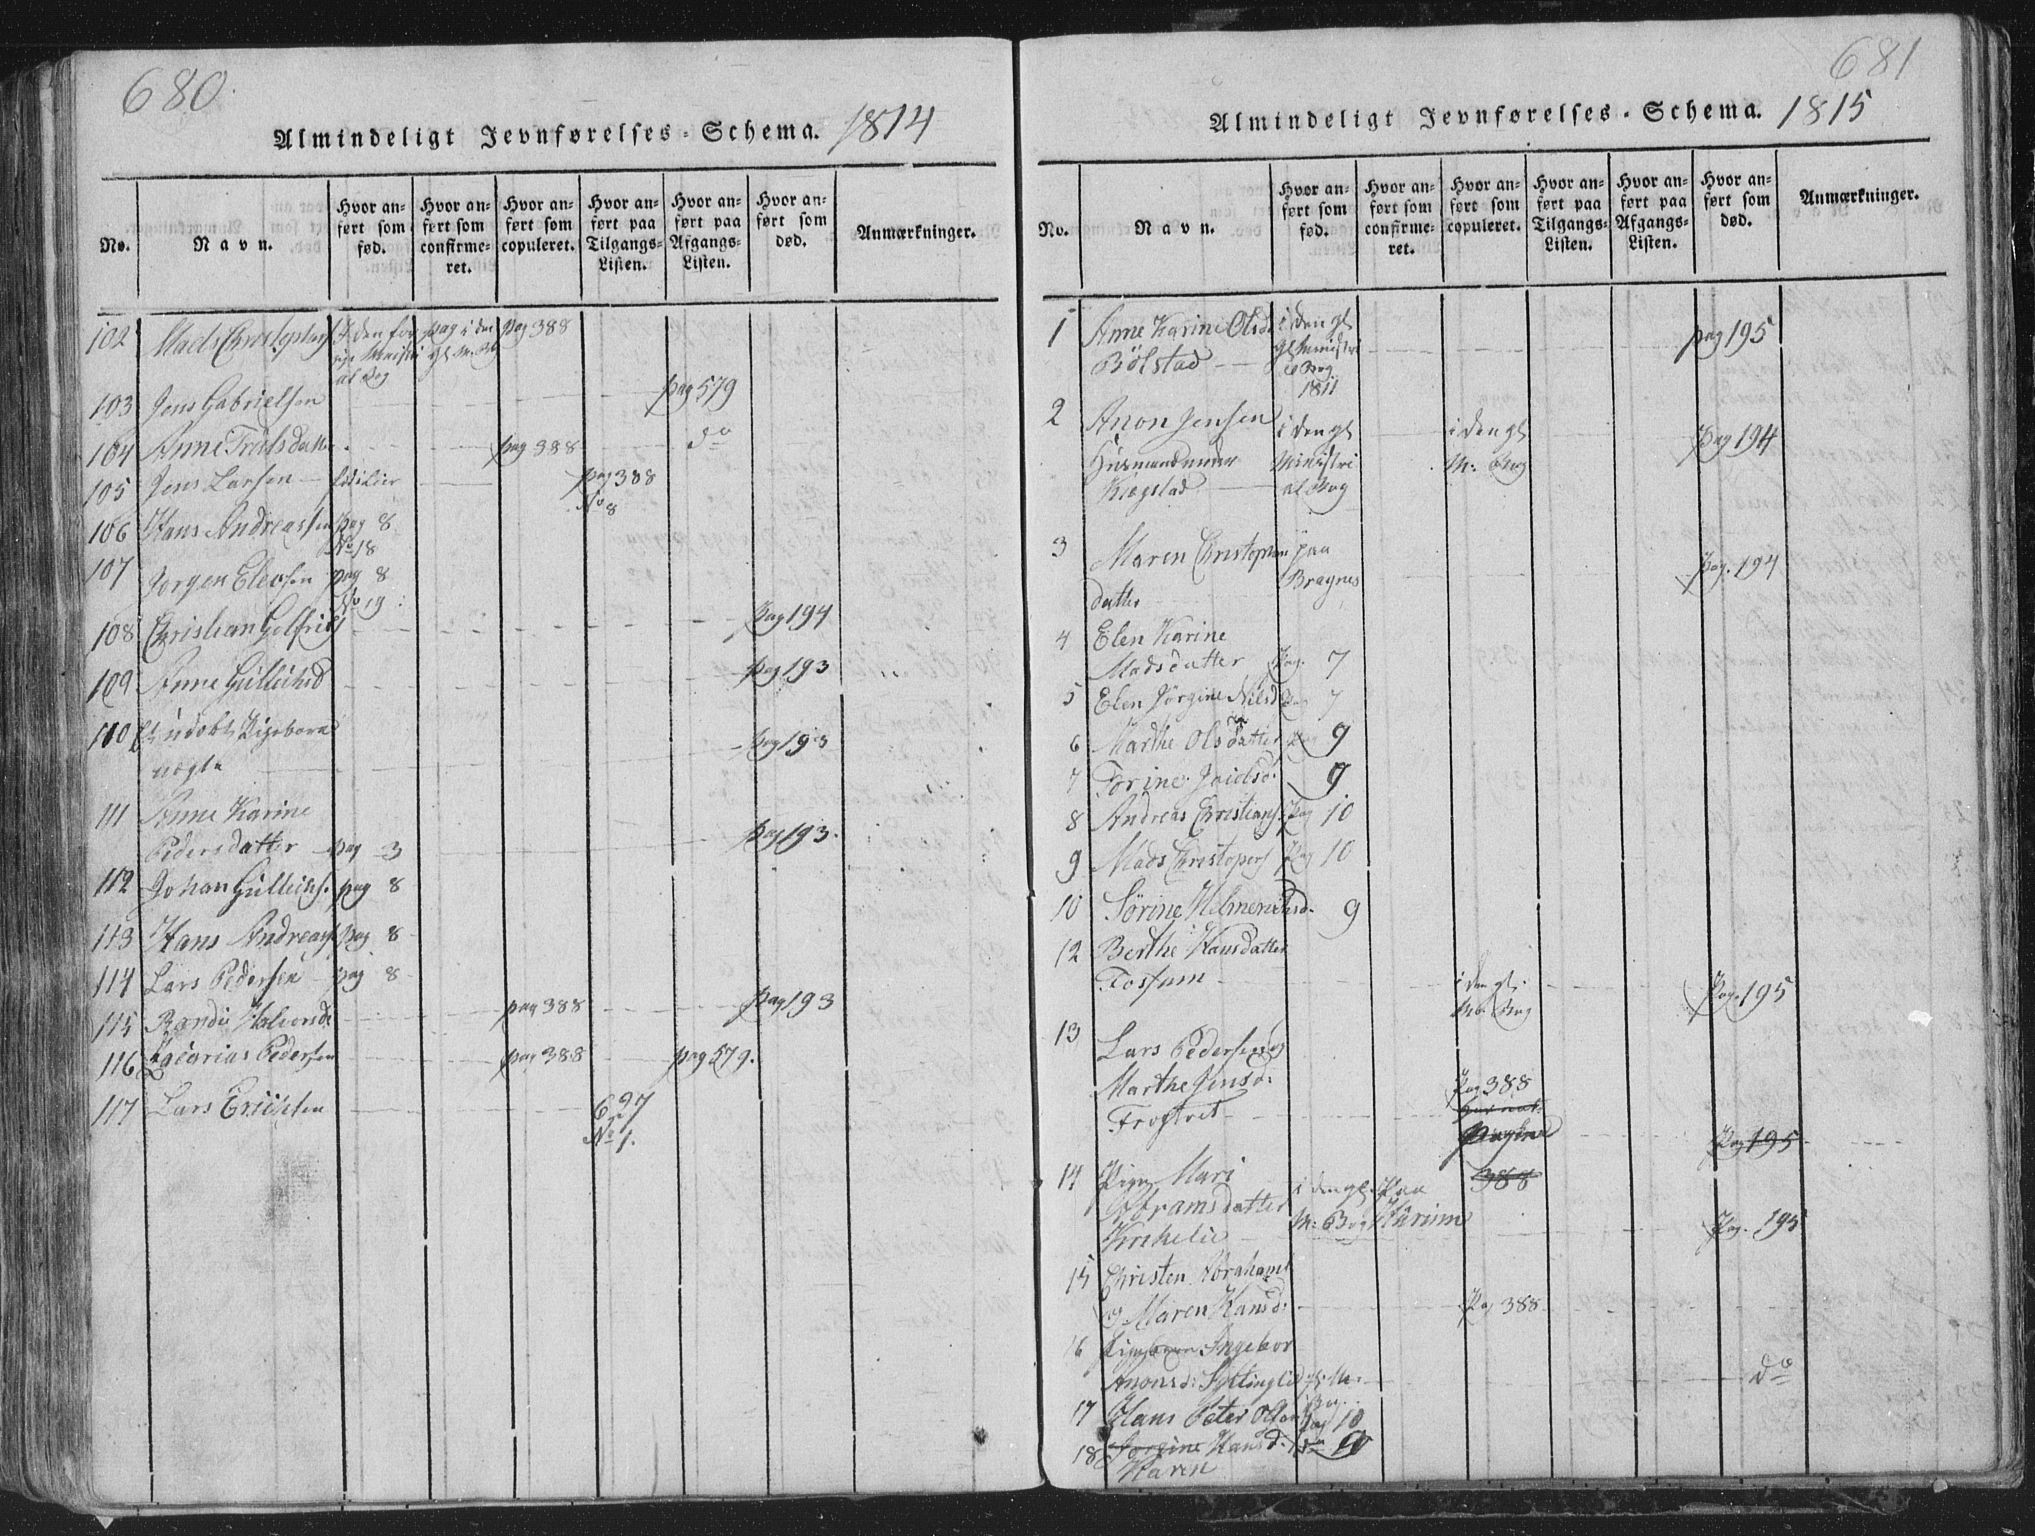 680.
Almindeligt Jevnførelses-Schema. 1814
No.
Navn.
Hvor anført som fød.
Hvor anført som confirmeret.
Hvor anført som copuleret.
Hvor anført paa Tilgangs-Listen.
Hvor anført paa Afgangs-Listen.
Hvor anført som død.
Anmærkninger.
102 Mads Christophers pag 388
103 Jens Gabrielsen pag 579
104 Anne Troelsdatter pag 388 do
105 Jens Larsen pag 388
No 8
106 Hans Andreassen pag 8
No 18
107 Jørgen Elevsen pag 8
No 19
108 Christian pag 194
109 Anne Gulliksd pag 193
110 pag 193
111 Anne Karine
Pedersdatter pag 3 pag 193.
112 Johan Gulliks. pag 8
113 Hans Andreas pag 8
114 Lars Pedersen pag 8
115 Randi Halvorsd. pag 388 pag 193
116 Zacarias Pedersen pag 388 pag 579.
117 Lars Ericksen 697
No 1.
681
Almindeligt Jevnførelses-Schema. 1815
No.
Navn.
Hvor anført som fød.
Hvor anført som confirmeret.
Hvor anført som copuleret.
Hvor anført paa Tilgangs-Listen.
Hvor anført paa Afgangs-Listen.
Hvor anført som død.
Anmærkninger.
1 Anne Karine Olsd. i den gl pag 195
Bölstad gl Ministri
al Bog
1811
2 Anon Jensen i den gl i den gl Pag 194
Huusmand under Ministri M: Bog
Kiegstad al Bog
3 Maren Christophers paa Pag. 194
datter Bragnes
4 Elen Karine
Madsdatter Pag. 7
5 Elen Jørgine Nilsd Pag 7
6 Marthe Olsdatter Pag 9
7 Torine 9
8 Andreas Christians. Pag 10
9 Mads Christopers Pag 10
10 Sørine 9
12 Berthe Hansdatter
Fossum i den gl. Pag. 195
M: Bog
13 Lars Pedersen og
Marthe Jensd: Pag 388
Pag 195
14 Pige Mari 388
Abramsdatter i den gl. Paa
M: Bog Hurum Pag. 195
15 Christen Abrahams
og Maren Hansd: Pag 388
16 Ingebor
Anonsd: do
17 Hans Peter Olsen Pag 10
18 Jørgine Hansd. do 9
Karen